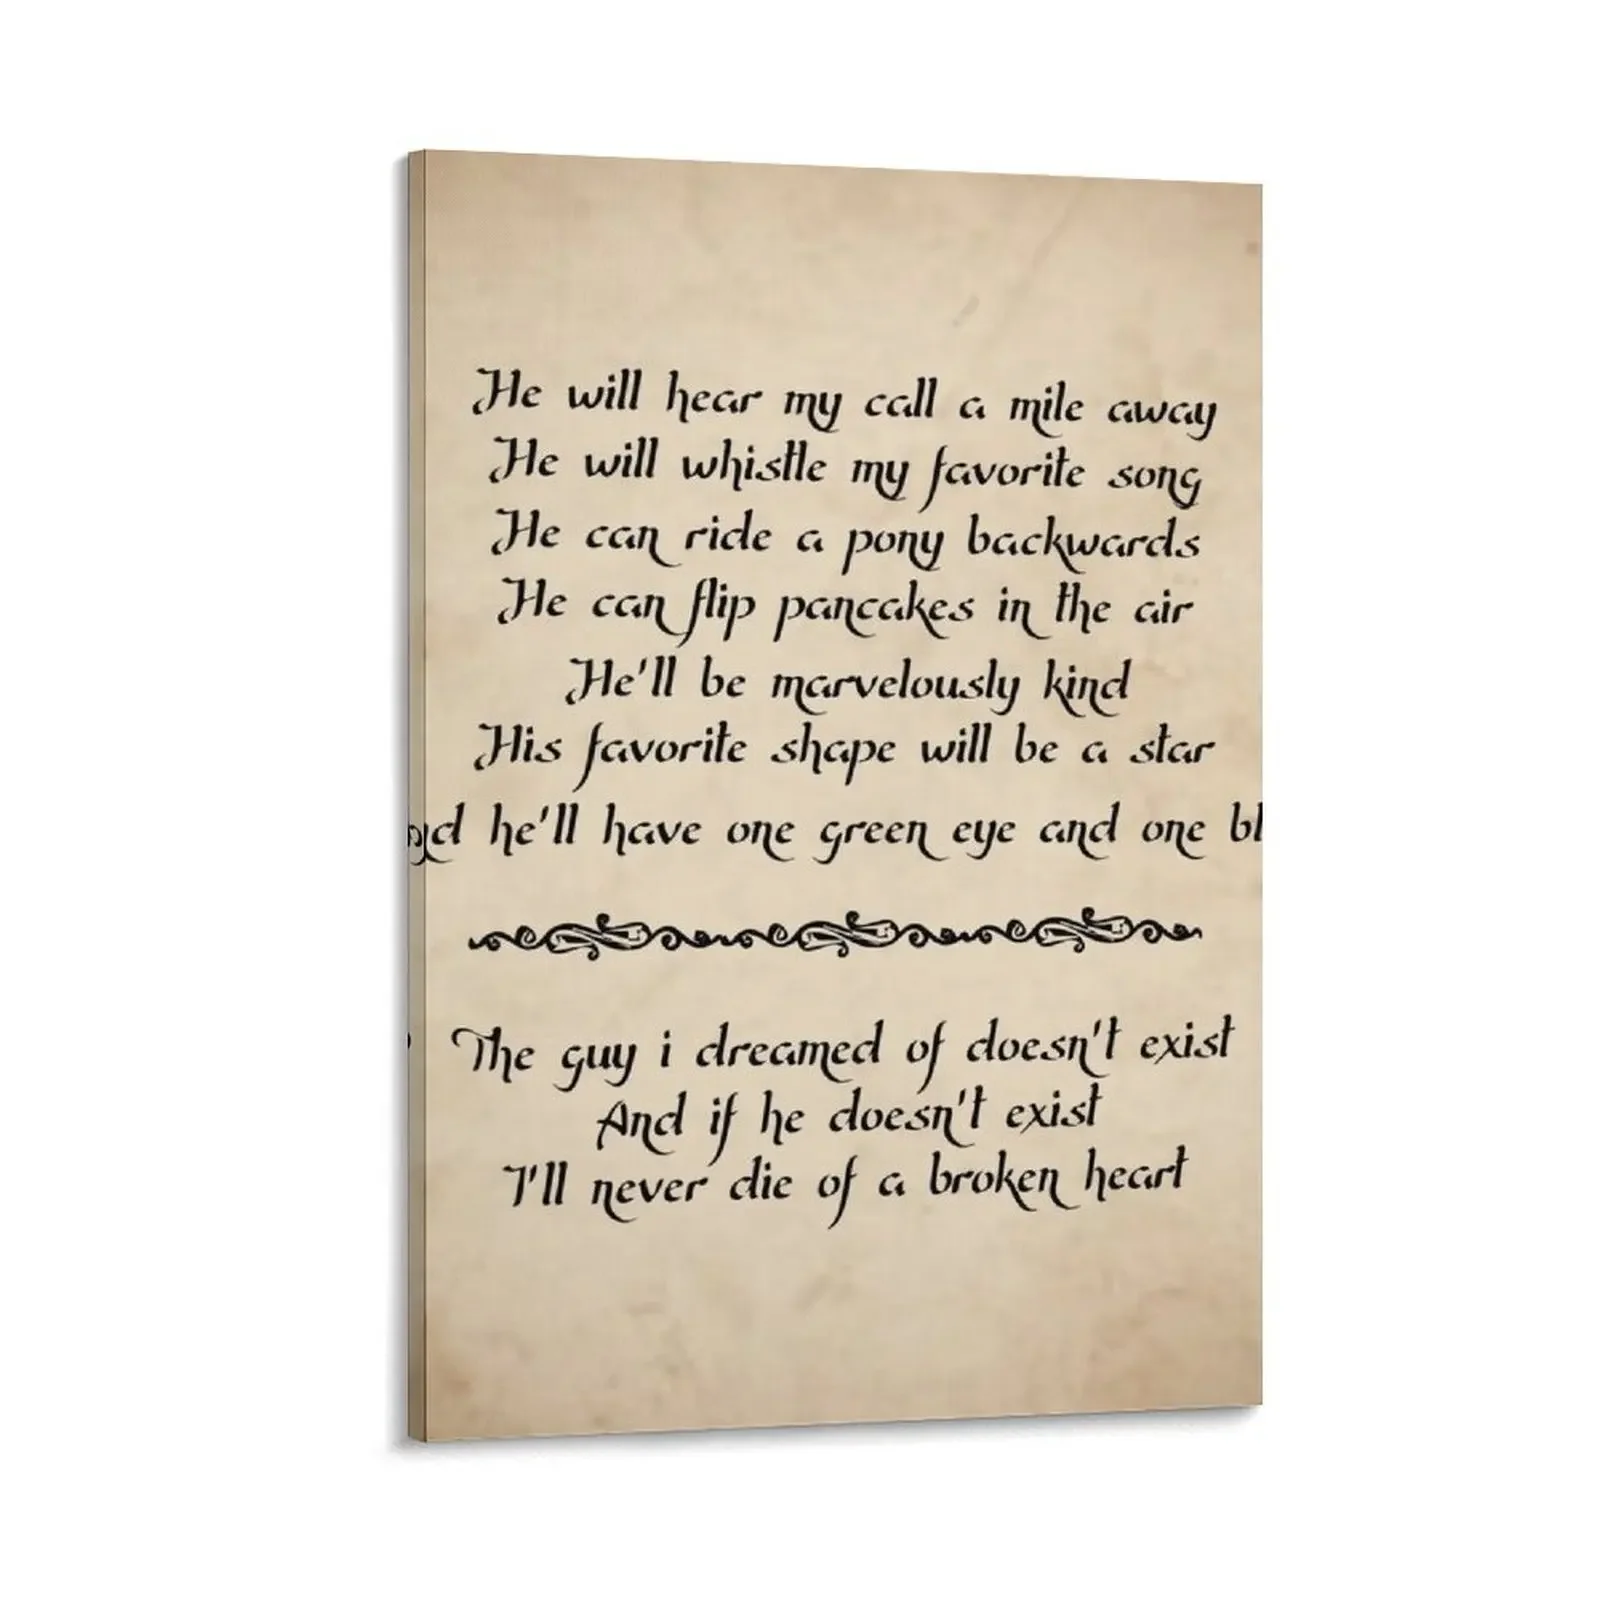 He will hear my call a mile away
He will whistle my favorite song
He can ride a pony backwards
He can flip pancakes in the air
He'll be marvelously kind
His favorite shape will be a star
he'll have one green eye and one
The guy i dreamed of doesn't exist
And if he doesn't exist
I'll never die of a broken heart